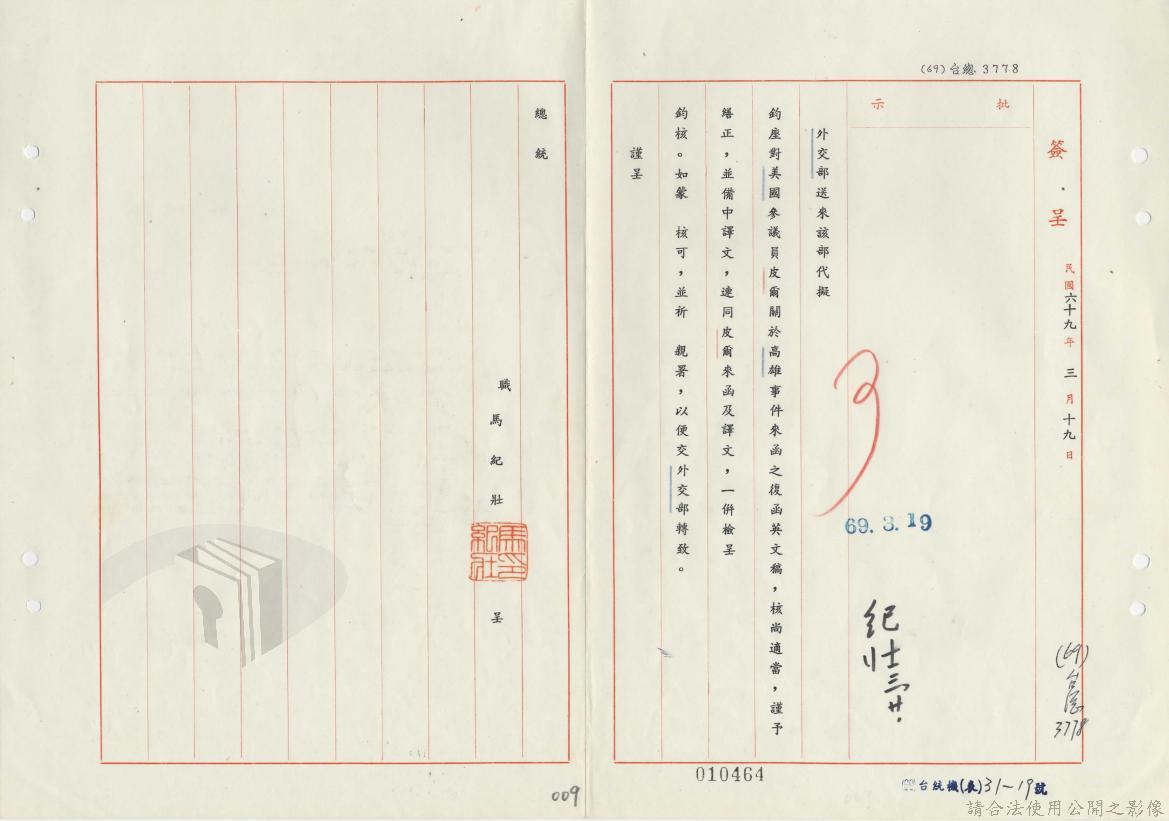 (69)台總 3778
簽呈
民國六十九年三月十九日
批示
外交部送來該部代擬
鈞座對美國參議員皮爾關於高雄事件來函之復函英文稿,核尚適當,謹予
繕正,並備中譯文,連同皮爾來函及譯文,一併檢呈
鈞核。如蒙 核可,並祈 親署,以便交外交部轉致。
謹呈
總統
職 馬紀壯 呈
馬紀壯印
69. 3. 19
紀壯 三廿.
(69)台總3778
台統機(表)31-19號
010464
009
請合法使用公開之影像